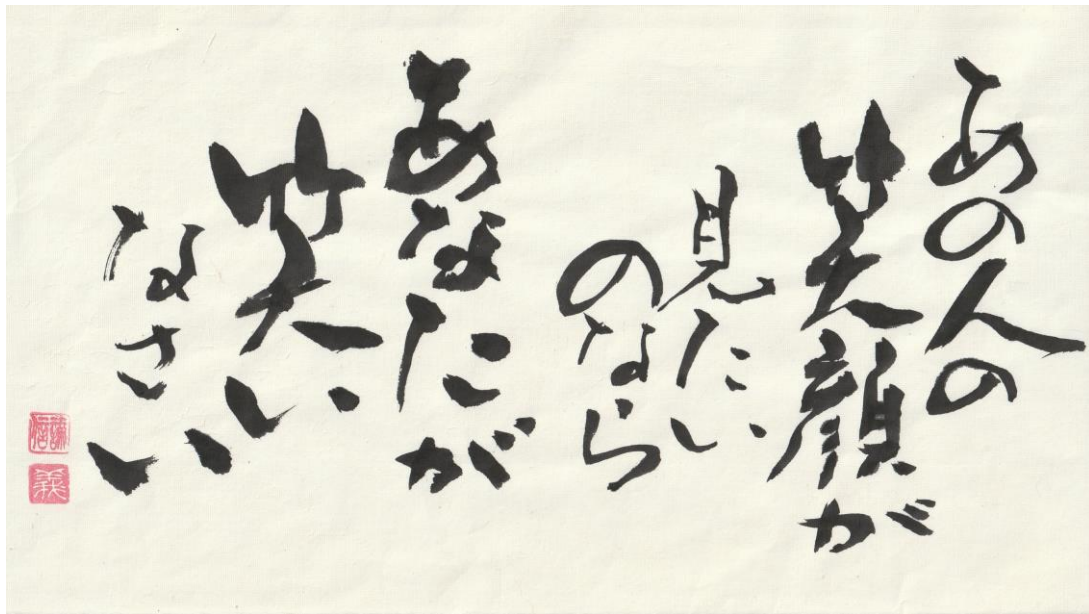 あの人の
笑顔が
見たい
のなら
あなたが
笑い
なさい